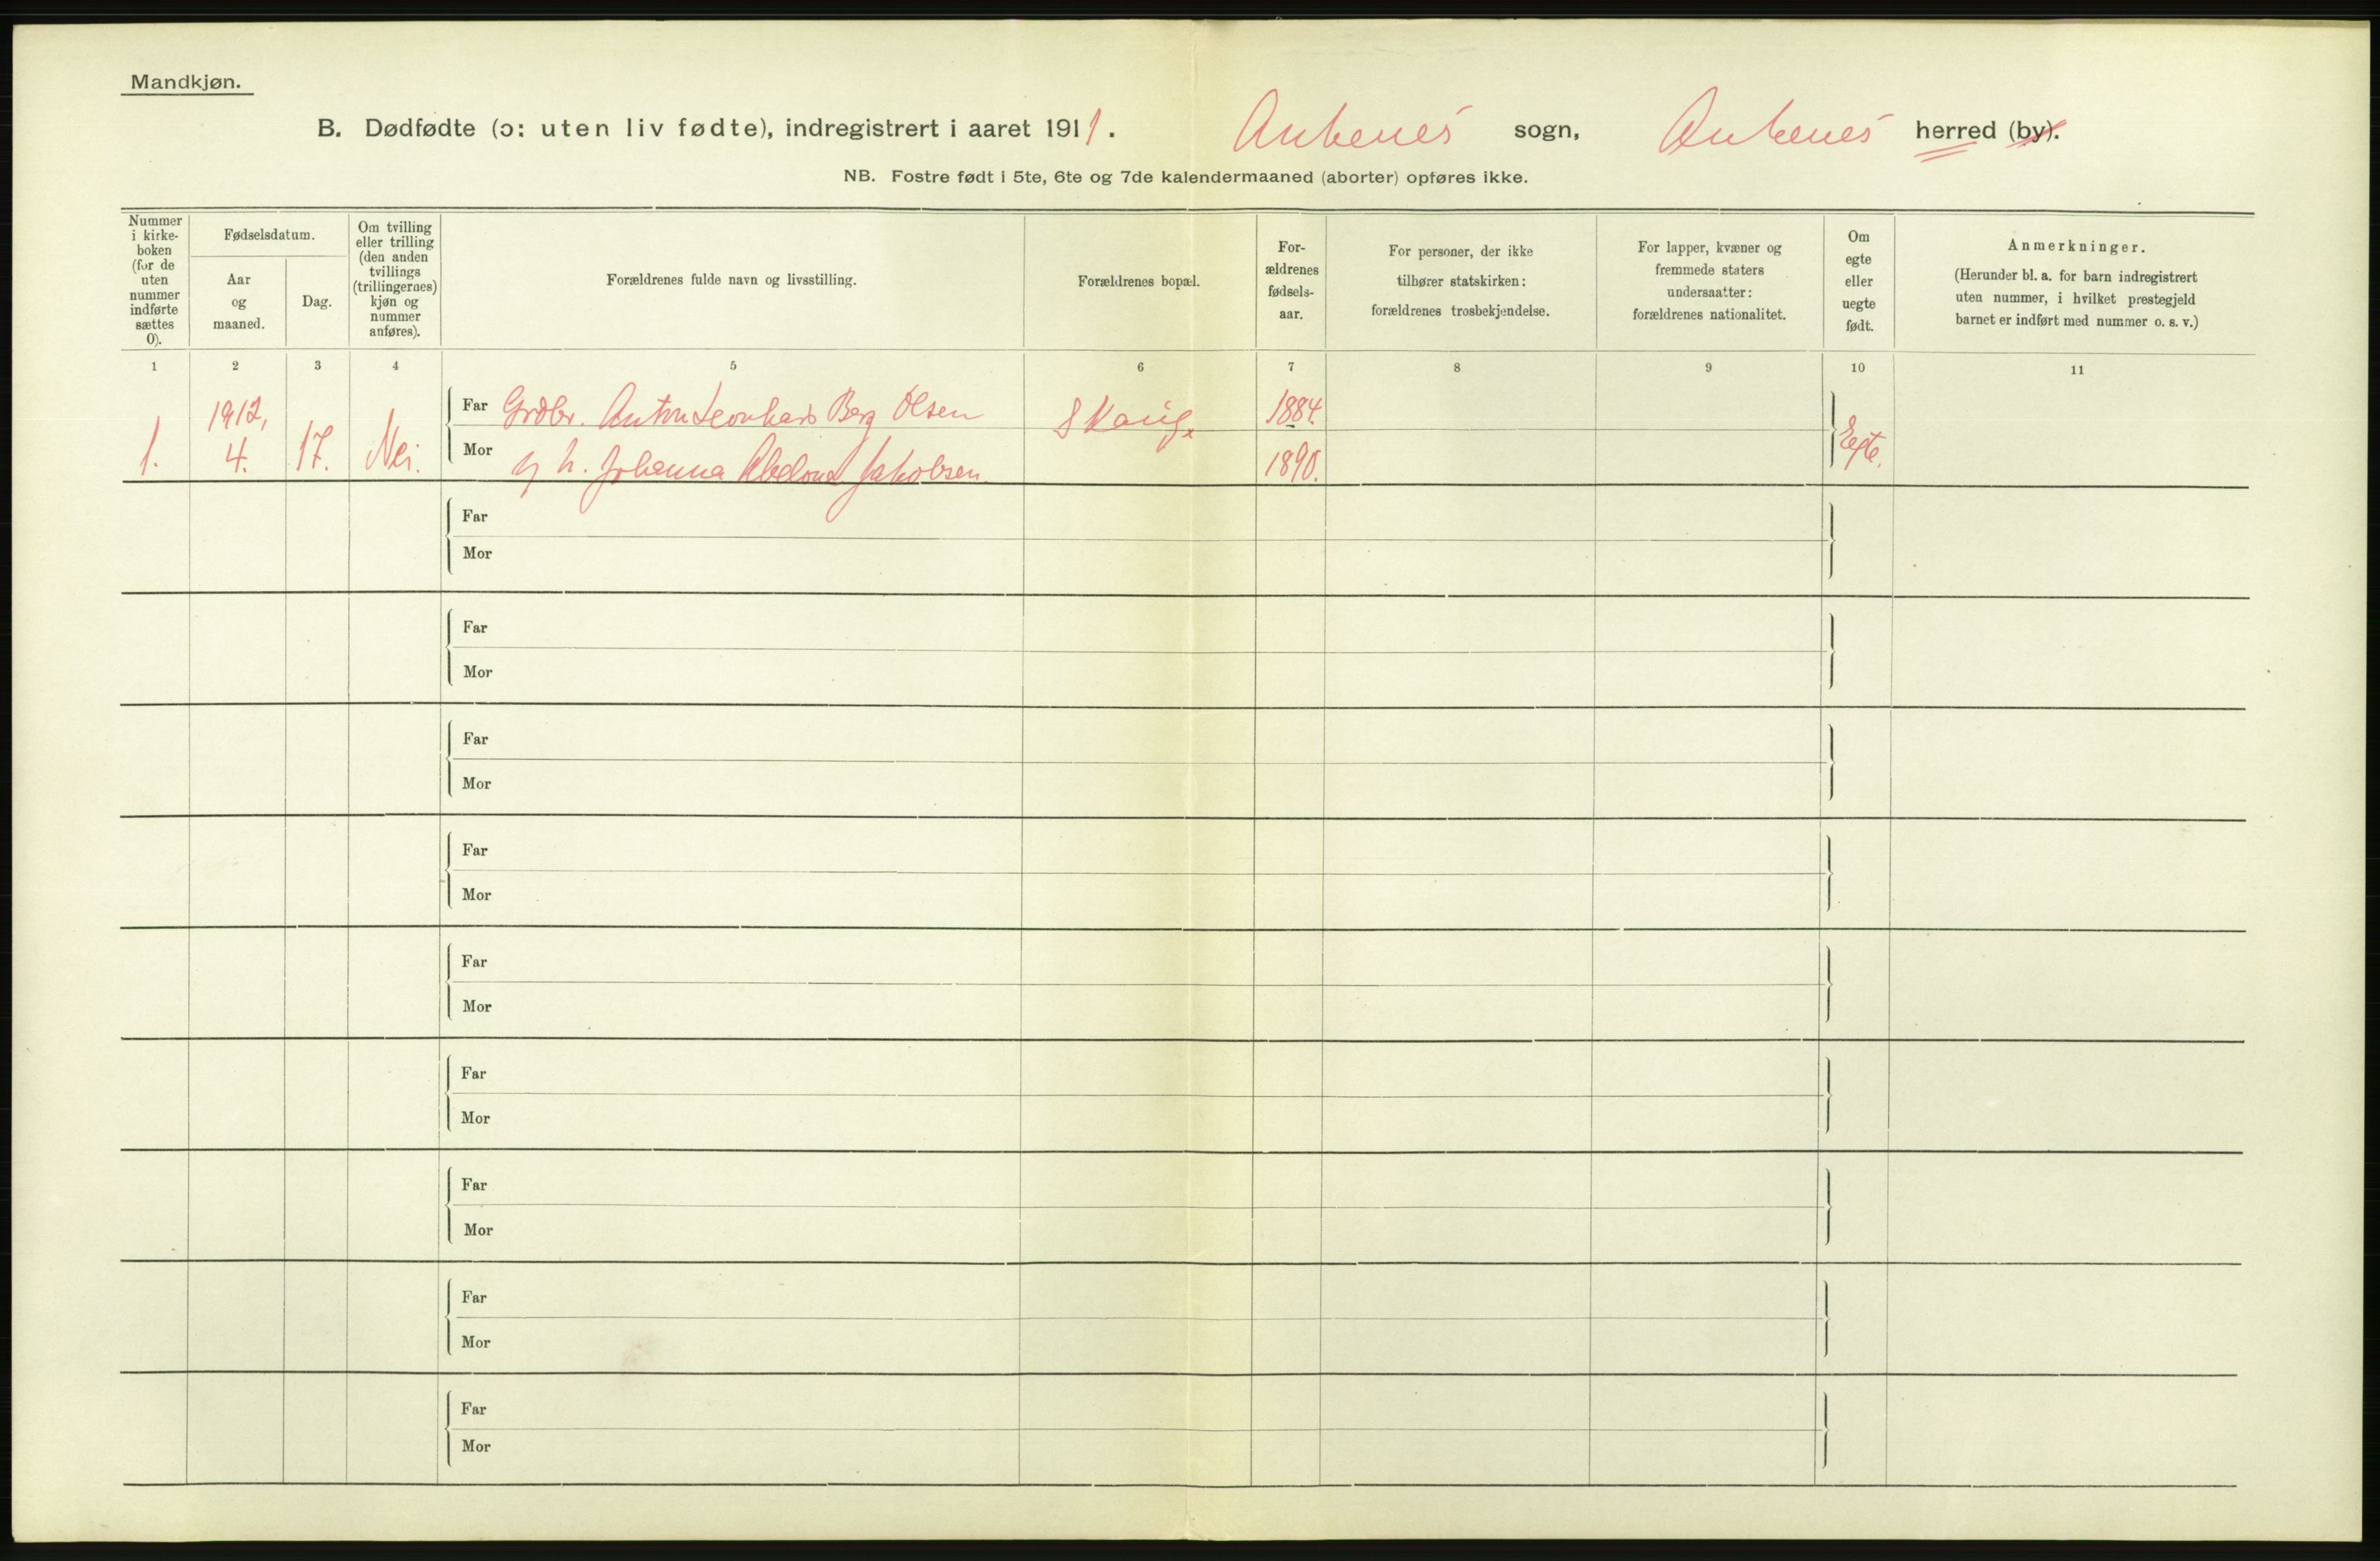 Mandkjøn.
B. Dødfødte (ɔ: uten liv fødte), indregistrert i aaret 1911. Ankenes sogn, Ankenes herred (by).
NB. Fostre født i 5te, 6te og 7de kalendermaaned (aborter) opføres ikke.
Nummer i kirke-boken (for de uten nummer indførte sættes 0).
Fødselsdatum.
Aar og maaned.
Dag.
Om tvilling eller trilling (den anden tvillings (trillingernes) kjøn og nummer anføres).
Forældrenes fulde navn og livsstilling.
Forældrenes bopæl.
For-ældrenes fødsels-aar.
For personer, der ikke tilhører statskirken: forældrenes trosbekjendelse.
For lapper, kvæner og fremmede staters undersaatter: forældrenes nationalitet.
Om egte eller uegte født.
Anmerkninger.
(Herunder bl. a. for barn indregistrert uten nummer, i hvilket prestegjeld barnet er indført med nummer o. s. v.)
1 2 3 4 5 6 7 8 9 10 11
1. 1912, 4. 17. Nei. Far Grdbr. Anton Leonhard Berg Olsen 1884. Egte.
Mor h. Johanna Jakobsen 1890.
Far
Mor
Far
Mor
Far
Mor
Far
Mor
Far
Mor
Far
Mor
Far
Mor
Far
Mor
Far
Mor